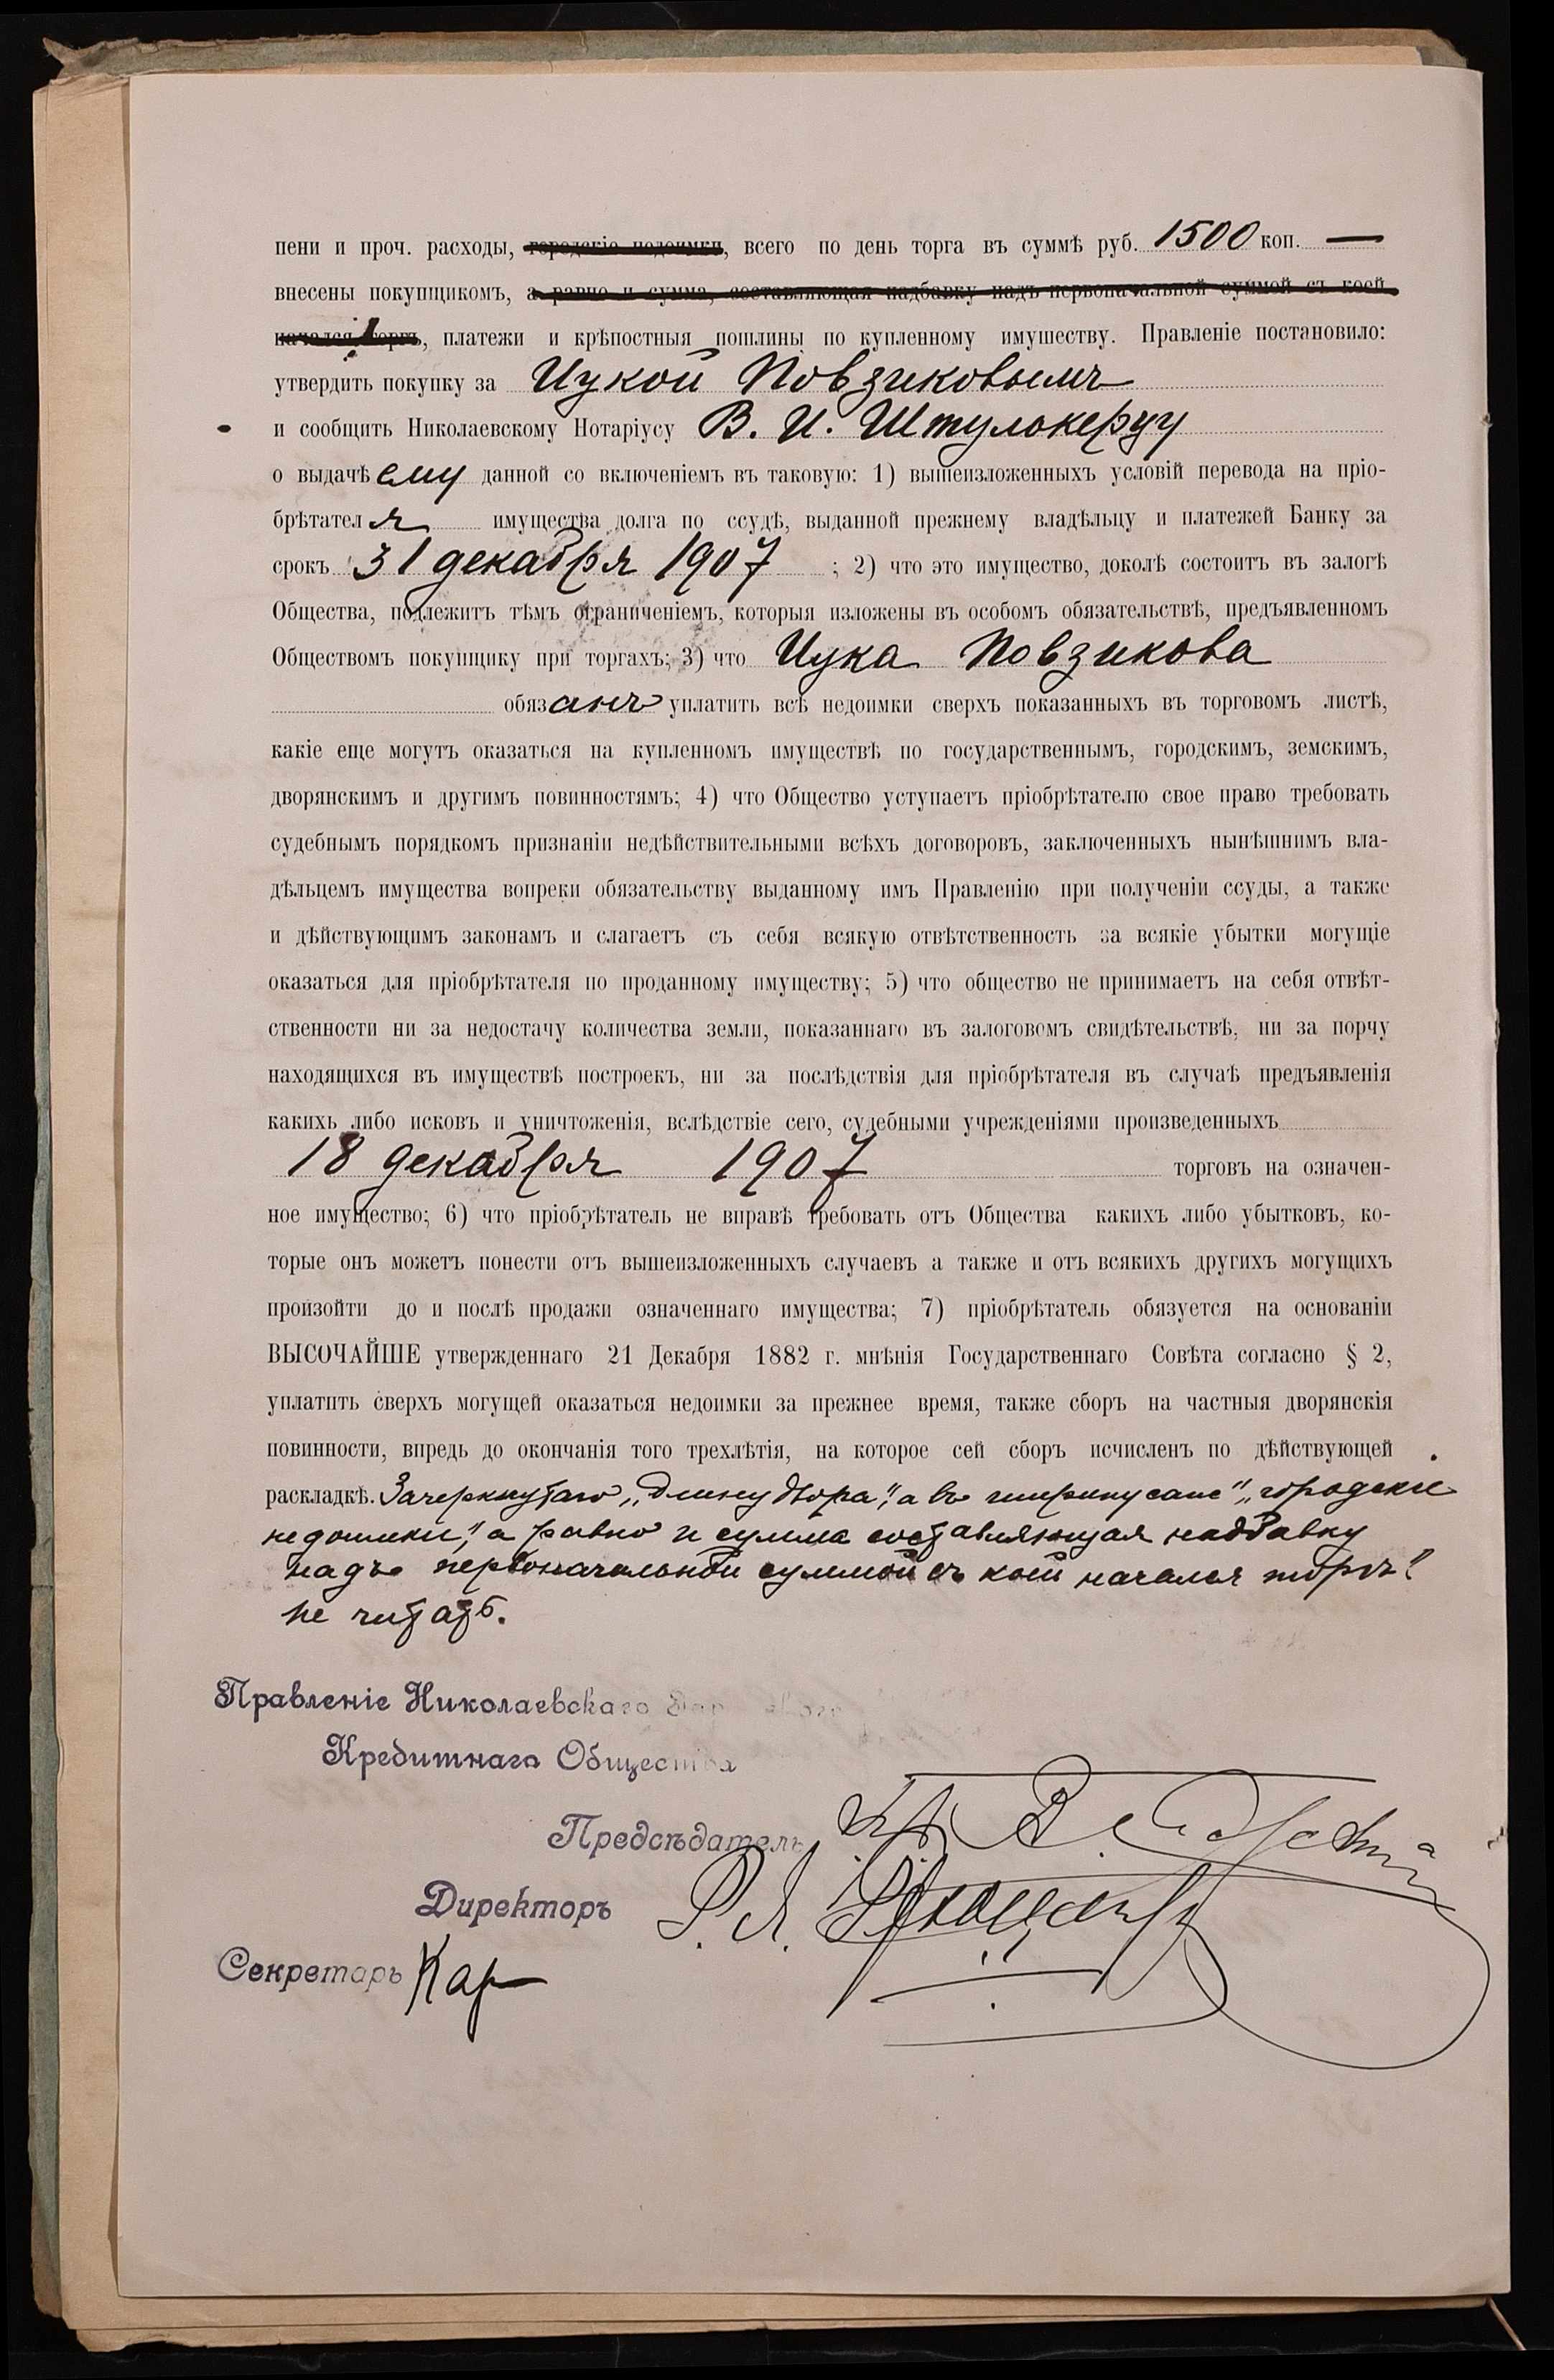 пени и проч. расходы, городскіе недоимки, всего по день торга въ суммѣ руб. 1500 коп. —
внесены покупщикомъ, а равно и сумма, составляющая надбавку надъ первоначальной суммой съ коей
начался торгъ, платежи и крѣпостныя пошлины по купленному имушеству. Правленіе постановило:
утвердить покупку за Иукой Повзиковымъ
и сообщить Николаевскому Нотаріусу В. И. Штулькерцу
о выдачѣ ему данной со включеніемъ въ таковую: 1) вышеизложенныхъ условій перевода на пріо-
брѣтателя имущества долга по ссудѣ, выданной прежнему владѣльцу и платежей Банку за
срокъ 31 декабря 1907 ; 2) что это имущество, доколѣ состоитъ въ залогѣ
Общества, подлежитъ тѣмъ ограниченіемъ, которыя изложены въ особомъ обязательствѣ, предъявленномъ
Обществомъ покупщику при торгахъ; 3) что Иука Повзикова
обязанъ уплатить всѣ недоимки сверхъ показанныхъ въ торговомъ листѣ,
какіе еще могутъ оказаться на купленномъ имуществѣ по государственнымъ, городскимъ, земскимъ,
дворянскимъ и другимъ повинностямъ; 4) что Общество уступаетъ пріобрѣтателю свое право требовать
судебнымъ порядкомъ признаніи недѣйствительными всѣхъ договоровъ, заключенныхъ нынѣшнимъ вла-
дѣльцемъ имущества вопреки обязательству выданному имъ Правленію при полученіи ссуды, а также
и дѣйствующимъ законамъ и слагаетъ съ себя всякую отвѣтственность за всякіе убытки могущіе
оказаться для пріобрѣтателя по проданному имуществу; 5) что общество не принимаетъ на себя отвѣт-
ственности ни за недостачу количества земли, показаннаго въ залоговомъ свидѣтельствѣ, ни за порчу
находящихся въ имуществѣ построекъ, ни за послѣдствія для пріобрѣтателя въ случаѣ предъявленія
какихь либо исковъ и уничтоженія, вслѣдствіе сего, судебными учрежденіями произведенныхъ
18 декабря 1907 торговъ на означен-
ное имущество; 6) что пріобрѣтатель не вправѣ требовать отъ Общества какихъ либо убытковъ, ко-
торые онъ можетъ понести отъ вышеизложенныхъ случаевъ а также и отъ всякихъ другихъ могущихъ
произойти до и послѣ продажи означеннаго имущества; 7) пріобрѣтатель обязуется на основаніи
ВЫСОЧАЙШЕ утвержденнаго 21 Декабря 1882 г. мнѣнія Государственнаго Совѣта согласно § 2,
уплатить сверхъ могущей оказаться недоимки за прежнее время, также сборъ на частныя дворянскія
повинности, впредь до окончанія того трехлѣтія, на которое сей сборъ исчисленъ по дѣйствующей
раскладкѣ. Зачеркнутаго „длину двора", „а въ ширину саж" „городскіе
недоимки", „а равно и сумма составляющая надбавку
надъ первоначальной суммой съ коей начался торгъ"
не читать.
Правленіе Николаевскаго
Кредитнаго Общества
Предсѣдатель
Директоръ
Секретарь Кар